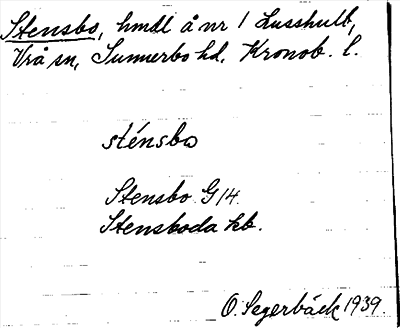 Stensbo, hmdl å nr 1 Lusshult,
Vrå sn, Sunnerbo hd. Kronob. l.
sténsbo
Stensbo G 14.
Stensboda kb.
O. Segerbäck 1939.